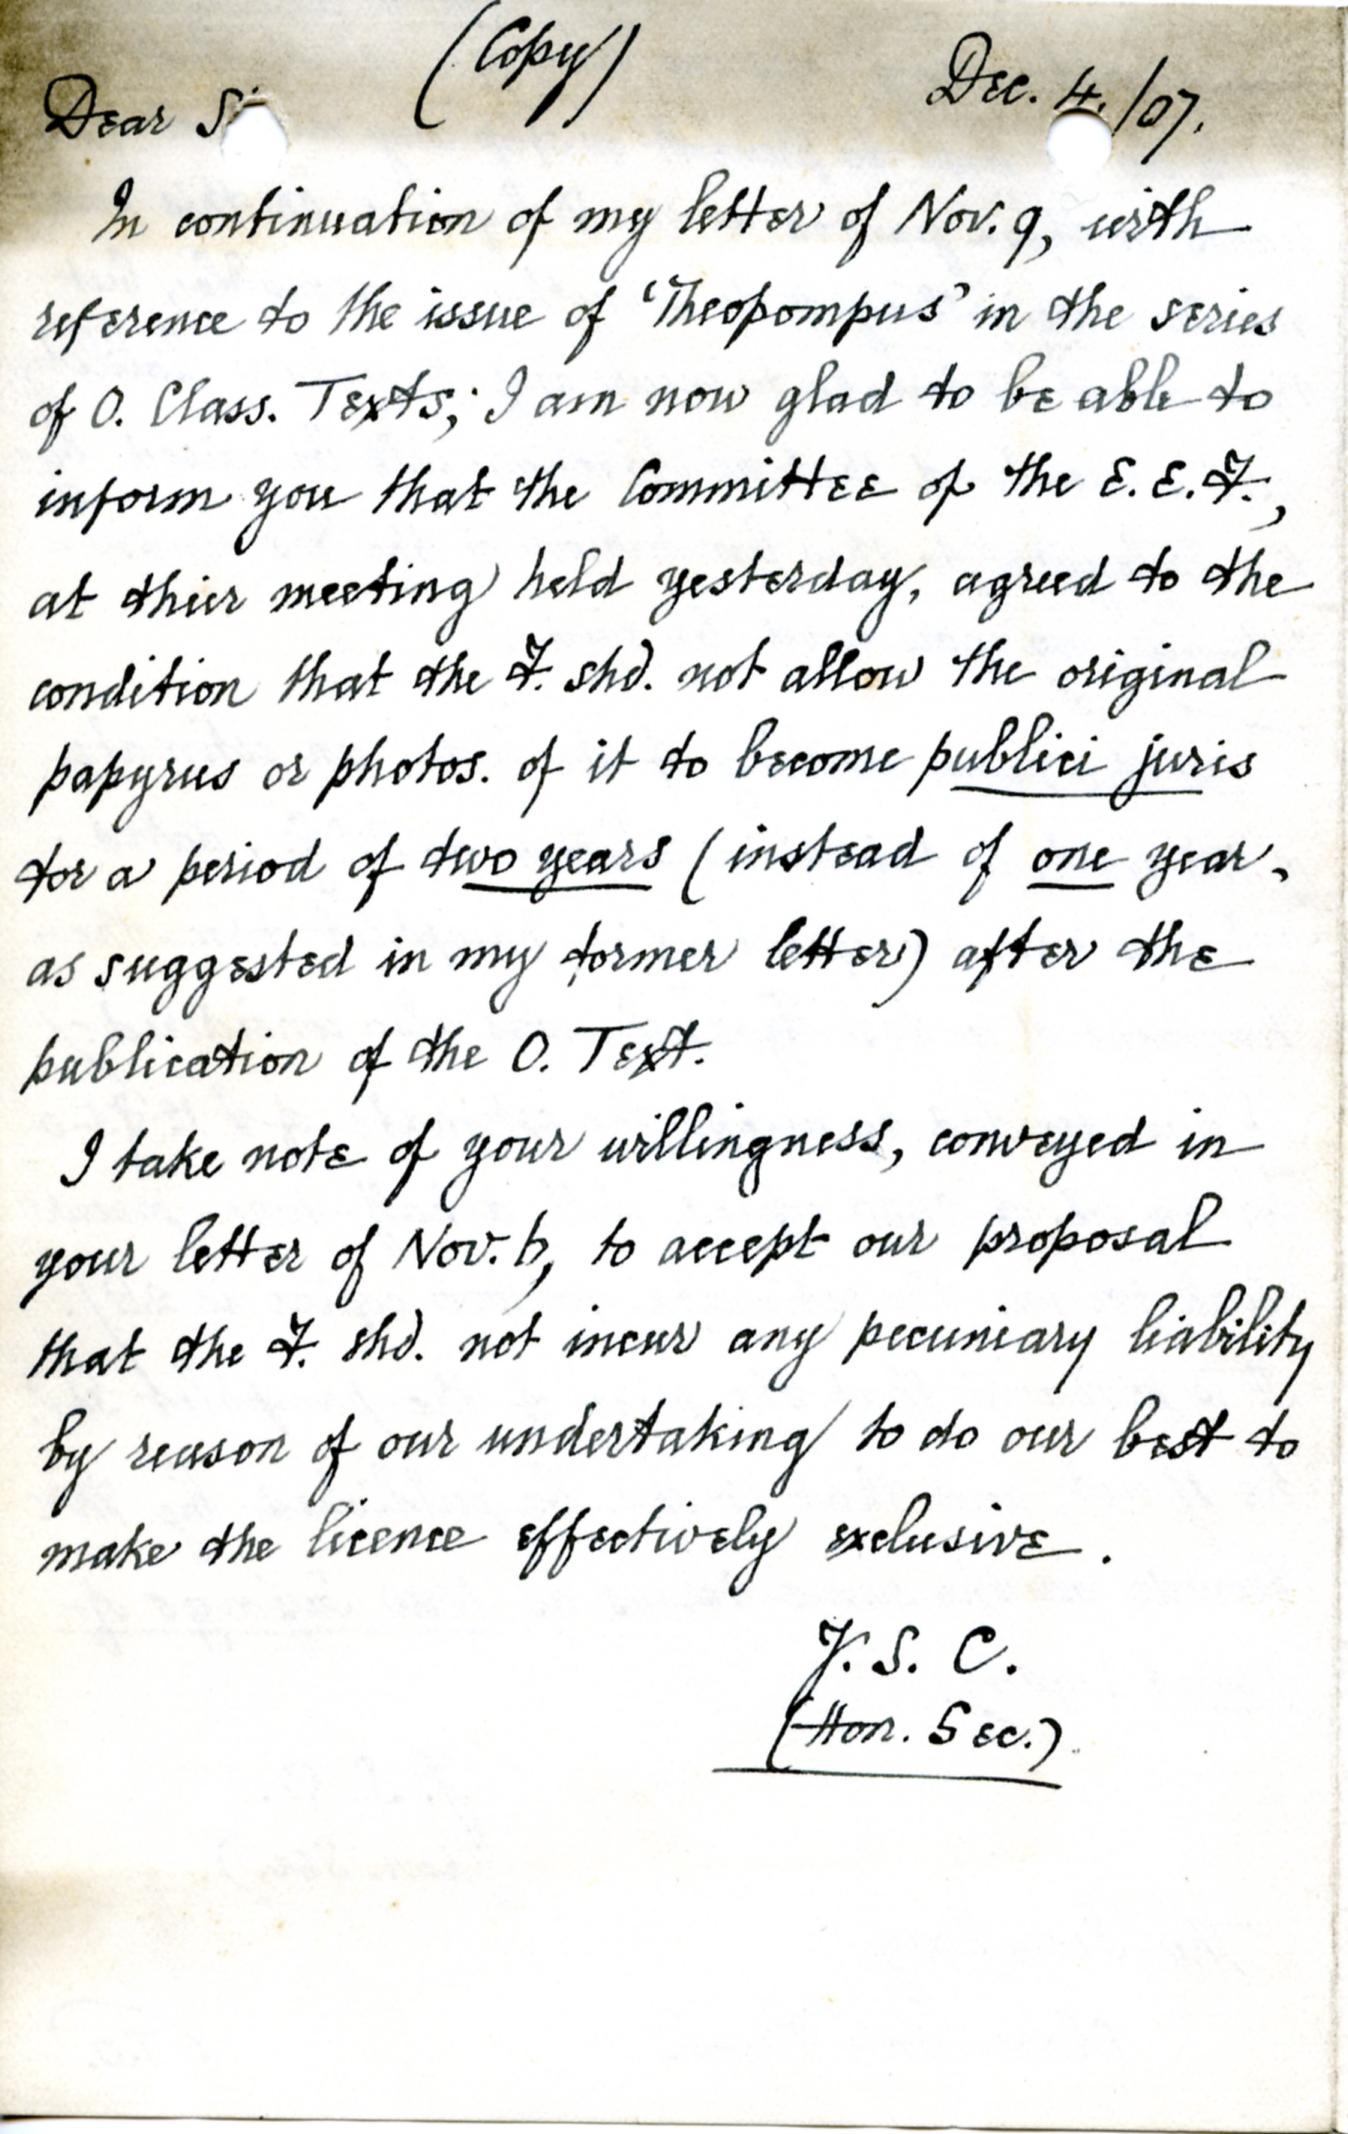 (Copy)
Dec. 4./07.
Dear Si
In continuation of my letter of Nov. 9, with
reference to the issue of 'Theopompus' in the series
of O. Class. Texts; I am now glad to be able to
inform you that the Committee of the E. E. F.,
at thier meeting held yesterday, agreed to the
condition that the F. shd. not allow the original
papyrus or photos. of it to become publici juris
for a period of two years (instead of one year,
as suggested in my former letter) after the
publication of the O. Text.
I take note of your willingness, conveyed in
your letter of Nov. 6, to accept our proposal
that the F. shd. not incur any pecuniary liability
by reason of our undertaking to do our best to
make the licence effectively exclusive.
J. S. C.
(Hon. Sec.)